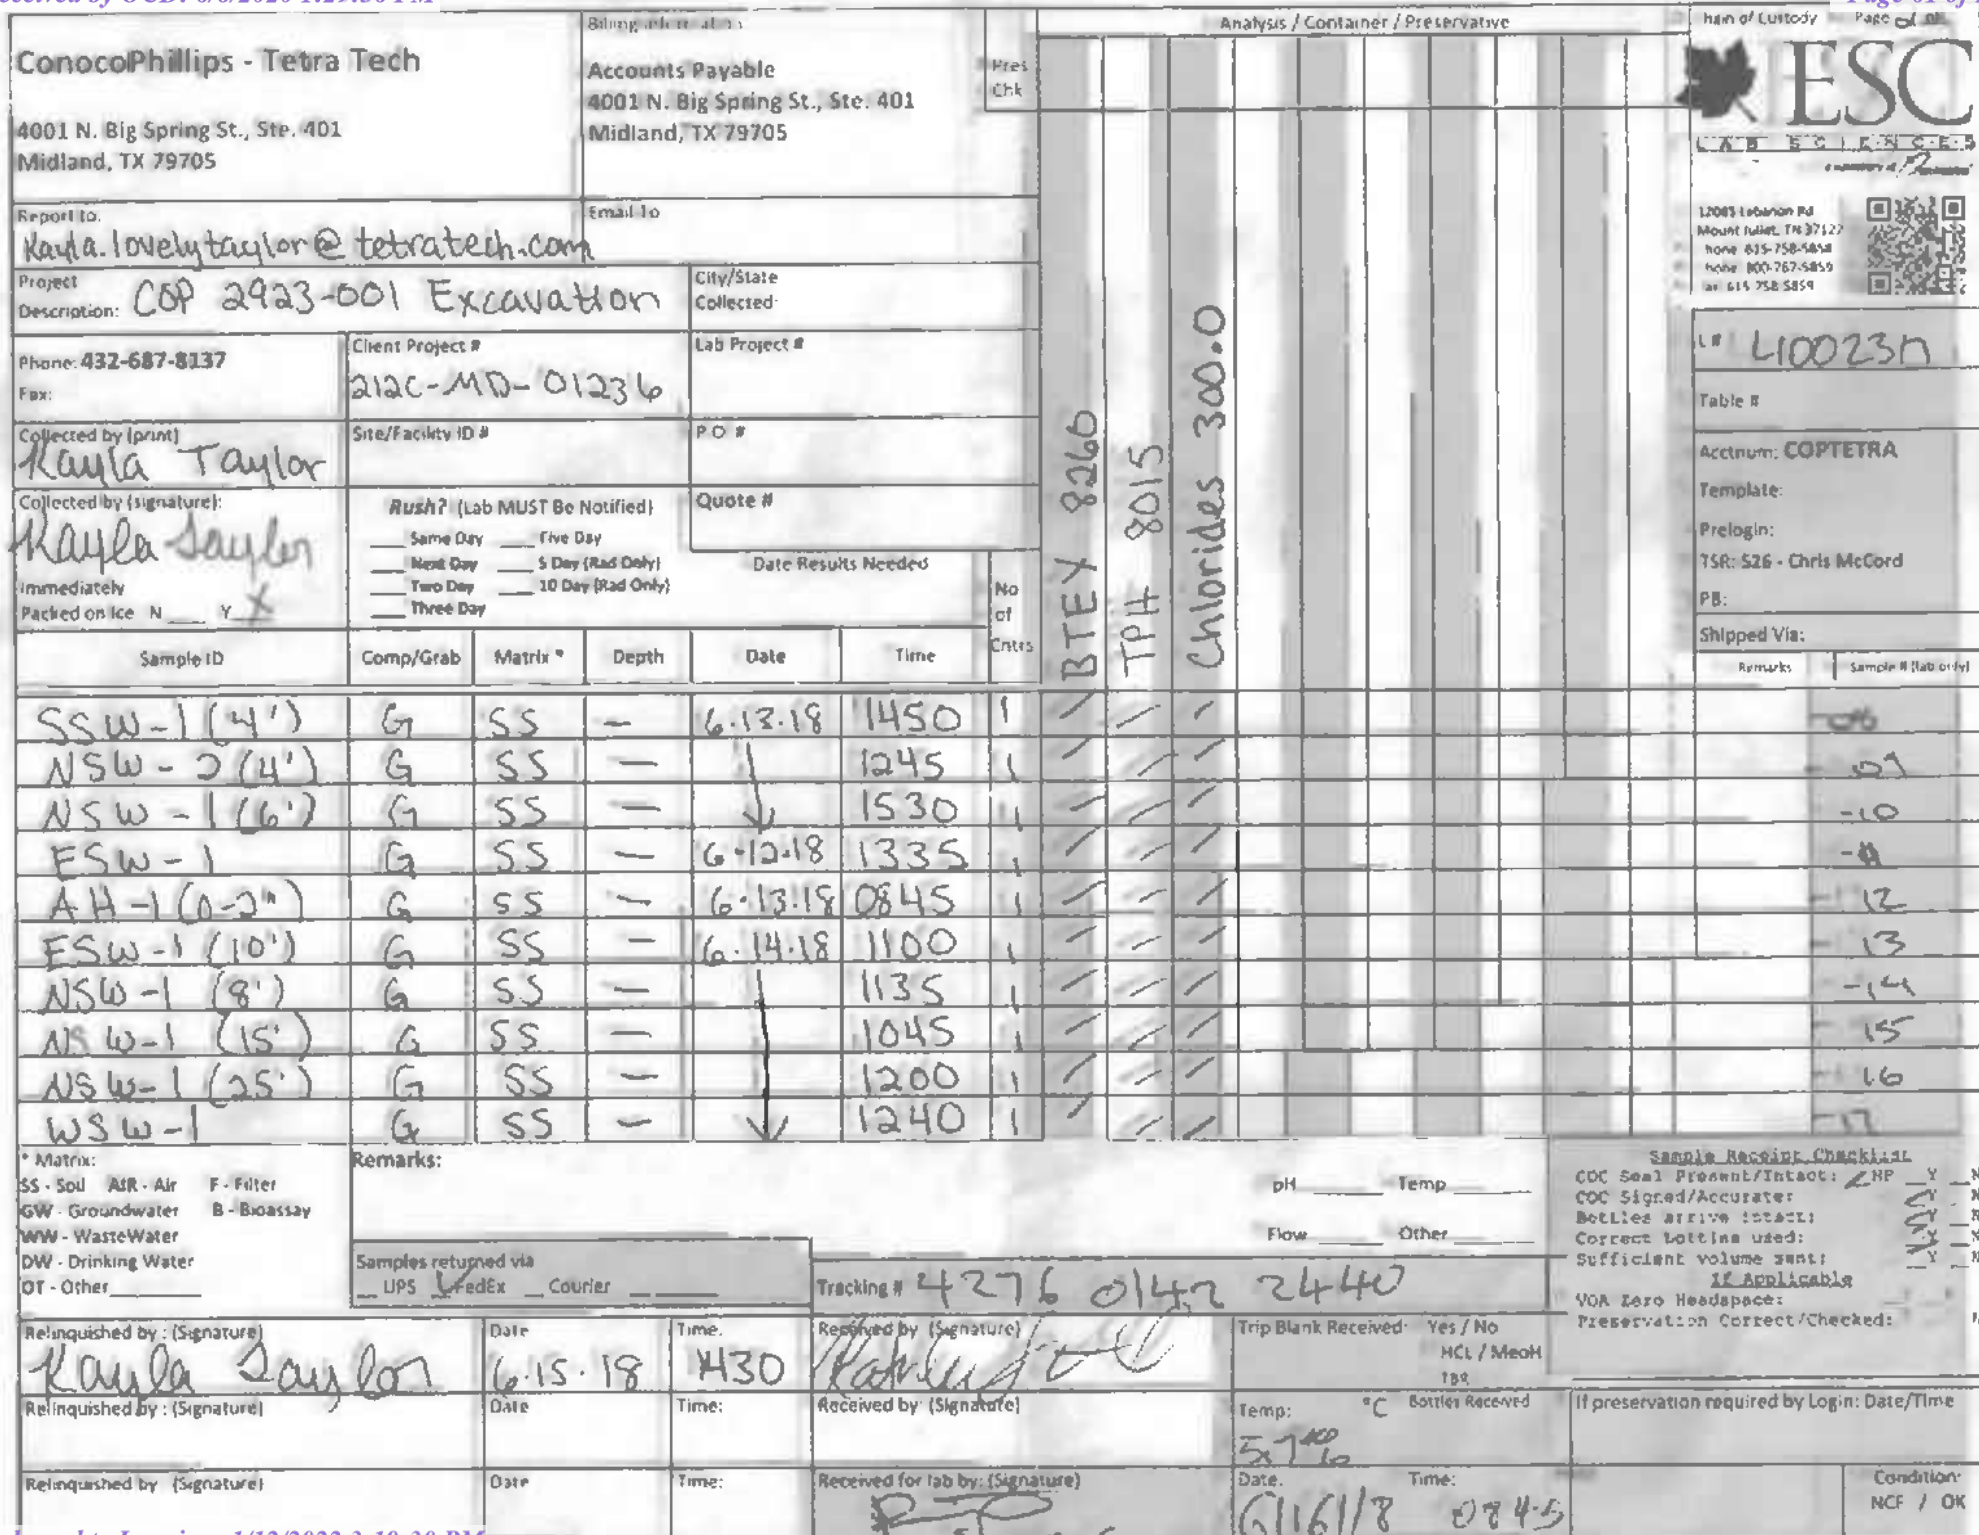 ConocoPhillips - Tetra Tech
4001 N. Big Spring St., Ste. 401
Midland, TX 79705
Accounts Payable
4001 N. Big Spring St., Ste. 401
Midland, TX 79705
Pres
Chk
Analysis / Container / Preservative
Page
ESC
LAB SCIENCES
12065 Lebanon Rd
Mount Juliet, TN 37122
Report to:
Kayla.lovelytaylor@tetratech.com
Email To
Project Description: COP 2923-001 Excavation
City/State Collected:
Phone: 432-687-8137
Fax:
Client Project #
212C-MD-01236
Lab Project #
Collected by (print)
Kayla Taylor
Site/Facility ID #
P.O #
Collected by (signature):
Kayla Taylor
Immediately
Packed on Ice N ___ Y X
Rush? (Lab MUST Be Notified)
___ Same Day ___ Five Day
___ Next Day ___ 5 Day (Rad Only)
___ Two Day ___ 10 Day (Rad Only)
___ Three Day
Quote #
Date Results Needed
No of Cntrs
BTEY 8260
TPH 8015
Chlorides 300.0
L#
Table #
Acctnum: COPTETRA
Template:
Prelogin:
TSR: 526 - Chris McCord
PB:
Shipped Via:
Remarks Sample # (lab only)
Sample ID Comp/Grab Matrix * Depth Date Time
SSW-1 (4') G SS — 6.13.18 1450 1
NSW-2 (4') G SS — 1245 1
NSW-1 (6') G SS — 1530 1 -10
ESW-1 G SS — 6-12-18 1335 1
AH-1 (0-2") G SS — 6.13.18 0845 1 12
ESW-1 (10') G SS — 6.14.18 1100 1 13
NSW-1 (8') G SS — 1135 1 -14
NSW-1 (15') G SS — 1045 1 15
NSW-1 (25') G SS — 1200 1 16
WSW-1 G SS — 1240 1 -17
* Matrix:
SS - Soil AIR - Air F - Filter
GW - Groundwater B - Bioassay
WW - WasteWater
DW - Drinking Water
OT - Other
Remarks:
pH ___ Temp ___
Flow ___ Other ___
Samples returned via
__ UPS ✓ FedEx __ Courier
Tracking # 4276 0142 2440
Sample Receipt Checklist
COC Seal Present/Intact: ✓ NP _ Y _ N
COC Signed/Accurate: Y N
Bottles arrive intact: Y N
Correct bottles used: Y N
Sufficient volume sent: Y N
If Applicable
VOA Zero Headspace:
Preservation Correct/Checked:
Relinquished by : (Signature)
Kayla Taylor
Date
6.15.18
Time:
1430
Received by (Signature)
Trip Blank Received: Yes / No
HCL / MeoH
TBR
Relinquished by : (Signature)
Date
Time:
Received by: (Signature)
Temp: °C Bottles Received
If preservation required by Login: Date/Time
Relinquished by (Signature)
Date
Time:
Received for lab by: (Signature)
Date:
6/16/18
Time:
0845
Condition:
NCF / OK